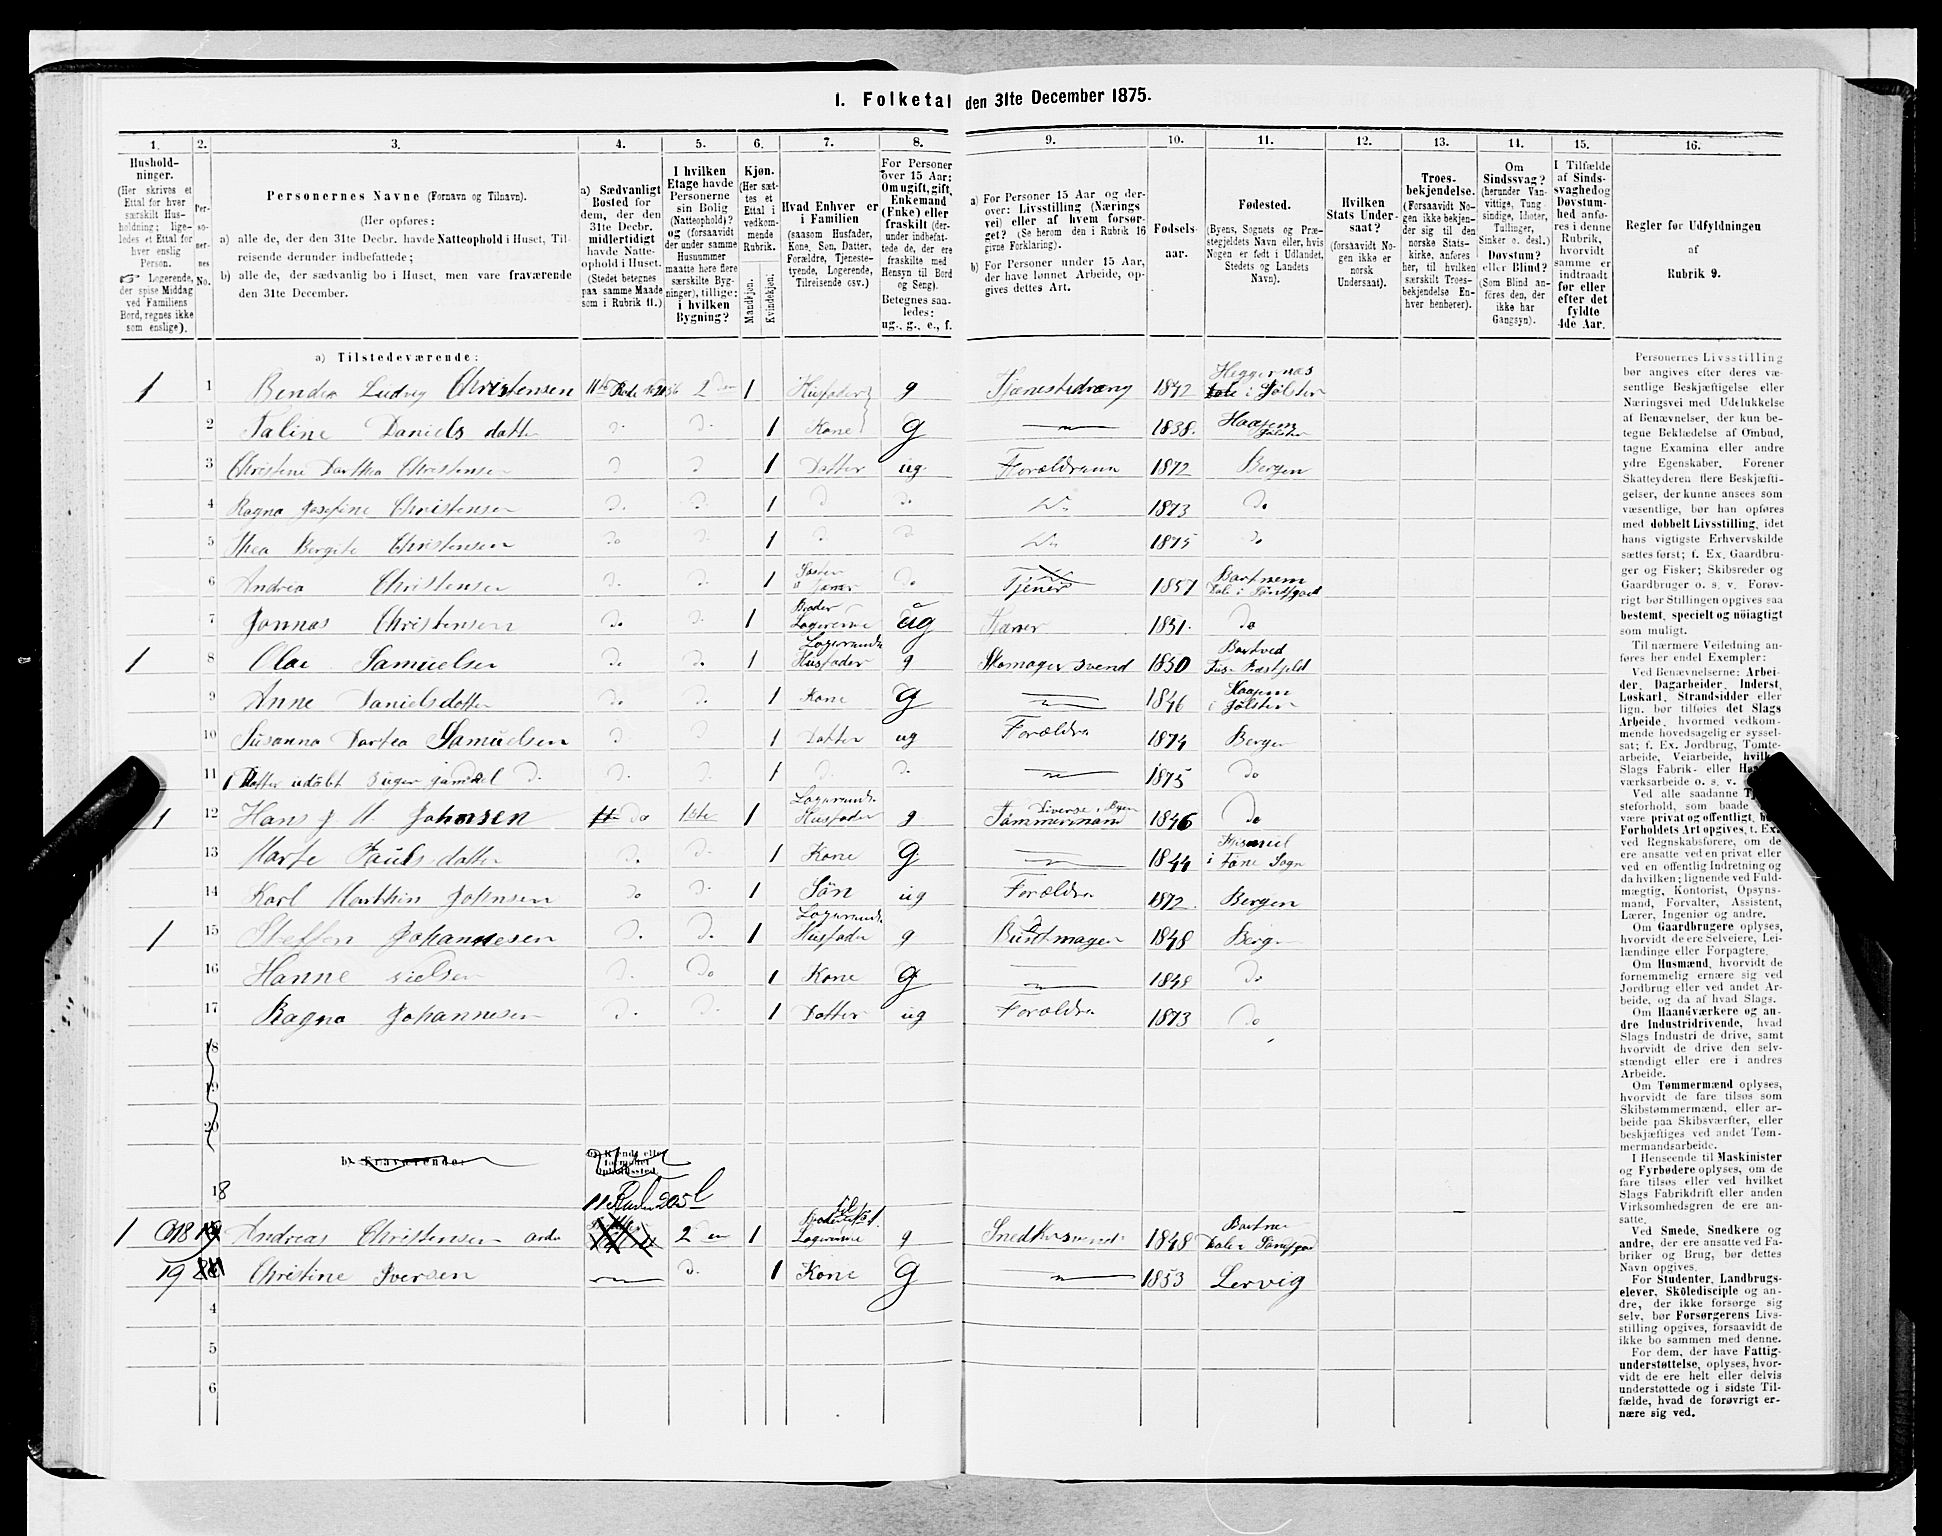 I. Folketal den 31te December 1875.
1. 2. 3. 4. 5. 6. 7. 8. 9. 10. 11. 12. 13. 14. 15. 16.
Husholdninger.
(Her skrives et Ettal for hver særskilt Husholdning; ligeledes et Ettal for hver enslig Person.
☞ Logerende, der spise Middag ved Familiens Bord, regnes ikke som enslige).
Personernes No.
Personernes Navne (Fornavn og Tilnavn).
(Her opføres:
a) alle de, der den 31te Decbr. havde Natteophold i Huset, Tilreisende derunder indbefattede;
b) alle de, der sædvanlig bo i Huset, men vare fraværende den 31te December.
a) Sædvanligt Bosted for dem, der den 31te Decbr. midlertidigt havde Natteophold i Huset. (Stedet betegnes paa samme Maade som i Rubrik 11.)
I hvilken Etage havde Personerne sin Bolig (Natteophold)? og (forsaavidt der under samme Husnummer maatte høre flere særskilte Bygninger), tillige: i hvilken Bygning?
Kjøn.
(Her sættes et Ettal i vedkommende Rubrik.
Mandkjøn. Kvindekjøn.
Hvad Enhver er i Familien
(saasom Husfader, Kone, Søn, Datter, Forældre, Tjenestetyende, Logerende, Tilreisende csv.)
For Personer over 15 Aar: Om ugift, gift, Enkemand (Enke) eller fraskilt (derunder indbefattede, de, der ere fraskilte med Hensyn til Bord og Seng).
Betegnes saaledes: ug., g., e., f.
a) For Personer 15 Aar og derover: Livsstilling (Næringsvei) eller af hvem forsørget? (Se herom den i Rubrik 16 givne Forklaring).
b) For Personer under 15 Aar, der have lønnet Arbeide, opgives dettes Art.
Fødselsaar.
Fødested.
(Byens, Sognets og Præstegjeldets Navn eller, hvis Nogen er født i Udlandet, Stedets og Landets Navn).
Hvilken Stats Undersaat?
(forsaavidt Nogen ikke er norsk Undersaat).
Troesbekjendelse.
(Forsaavidt Nogen ikke bekjender sig til den norske Statskirke, anføres her, til hvilken særskilt Troesbekjendelse Enhver henhører).
Om Sindssvag? (herunder Vanvittige, Tungsindige, Idioter, Tullinger, Sinker o. desl.) Døvstum? eller Blind? (Som Blind anføres den, der ikke har Gangsyn).
I Tilfælde af Sindssvaghed og Døvstumhed anføres i denne Rubrik, hvorvidt samme er indtraadt før eller efter det fyldte 4de Aar.
Regler for Udfyldningen af Rubrik 9.
a) Tilstedeværende:
1 1 Christensen 2den 1 Husfader g Tjenestedreng 1842 i Jølster
2 Daniels datter 1 Kone g 1838.
3 Christensen 1 Datter ug. 1872 Bergen
4 Ragna Josefine Christensen do 1 do do do 1873 do
5 Thea Christensen do 1 do do do 1875 do
6 Andrea Christensen do do 1 do Tjener 1857
7 Jonnas Christensen do do 1 Broder Logerende ug 1851. do
1 8 Samuelsen do do 1 Logerende Husfader g Skomager svend 1850
9 Anne Danielsdatter do do 1 Kone g 1846 i Jølster
10 Samuelsen do do 1 Datter ug Forældre 1874 Bergen
11 Datter udøbt do do do 1 do do 1875 do
1 12 Hans J. Johnsen do 1ste 1 Logerende Husfader g Tømmermand 1846 do
13 Marte Pauls datter do do 1 Kone g 1844 i Fane Sogn
14 Karl Johnsen do do 1 Søn ug Forældre 1872 Bergen
1 15 Steffen Johannesen do do 1 Logerende Husfader g Buntmager 1848 Bergen
16 Hanne Nielsen do do 1 Kone g 1848 do
17 Ragna Johannesen do do 1 Datter ug Forældre 1873 do
18
19
20
b) Fraværende:
18
1 18 Andreas Christensen 2den 1 Logerende g Snedkersvend 1848
19 Christine Iversen do 1 Kone g 1853 Lervig
4
5
6
Personernes Livsstilling
bør angives efter deres væ-
sentlige Beskjæftigelse eller
Næringsvei med Udelukkelse
af Benævnelser, der kun be-
tegne Beklædelse af Ombud,
tagne Examina eller andre
ydre Egenskaber. Forener
Skatteyderen flere Beskjæfti-
gelser, der kunne ansees som
væsentlige, bør han opføres
med dobbelt Livsstilling, idet
hans vigtigste Erhvervskilde
sættes først; f. Ex. Gaardbru-
ger og Fisker; Skibsreder og
Gaardbruger o. s. v. Forøv-
rigt bør Stillingen opgives saa
bestemt, specielt og nøiagtigt
som muligt.
Til nærmere Veiledning an-
føres her endel Exempler:
Ved Benævnelserne: Arbei-
der, Dagarbeider, Inderst,
Løskarl, Strandsidder eller
lign. bør tilføies det Slags
Arbeide, hvormed vedkom-
mende hovedsagelig er syssel-
sat; f. Ex. Jordbrug, Tomte-
arbeide, Veiarbeide,
Slags Fabrik- eller
værksarbeide o. s. v.
Ved alle saadanne
steforhold, som baade
være privat og offentligt,
Forholdets Art opgives, t. Ex.
ved Regnskabsførere, om de
ere ansatte ved en privat eller
ved en offentlig Indretning og
da hvilken; lignende ved Fuld-
mægtig, Kontorist, Opsyns-
mand, Forvalter, Assistent,
Lærer, Ingeniør og andre.
Om Gaardbrugere oplyses,
hvorvidt de ere Selveiere, Lei-
lændinge eller Forpagtere.
Om Husmænd, hvorvidt de
fornemmelig ernære sig ved
Jordbrug eller ved andet Ar-
beide, og da af hvad Slags.
Om Haandværkere og an-
dre Industridrivende, hvad
Slags Industri de drive, samt
hvorvidt de drive den selv-
stændigt eller ere i andres
Arbeide.
Om Tømmermænd oplyses,
hvorvidt de fare tilsøs som
Skibstømmermænd, eller ar-
beide paa Skibsværfter, eller
beskjæftiges ved andet Tøm-
mermandsarbeide.
I Henseende til Maskinister
og Fyrbødere oplyses, om de
fare tilsøs eller ved hvilket
Slags Fabrikdrift eller anden
Virksomhedsgren de ere an-
satte.
Ved Smede, Snedkere og
andre, der ere ansatte ved Fa-
briker og Brug, bør dettes
Navn opgives.
For Studenter, Landbrugs-
elever, Skoledisciple og an-
dre, der ikke forsørge sig
selv, bør Forsørgerens Livs-
stilling opgives, forsaavidt de
ikke bo sammen med denne.
For dem, der have Fattig-
understøttelse, oplyses, hvor-
vidt de ere helt eller delvis
understøttede og i sidste Til-
fælde, hvad de forøvrigt er-
nære sig ved.